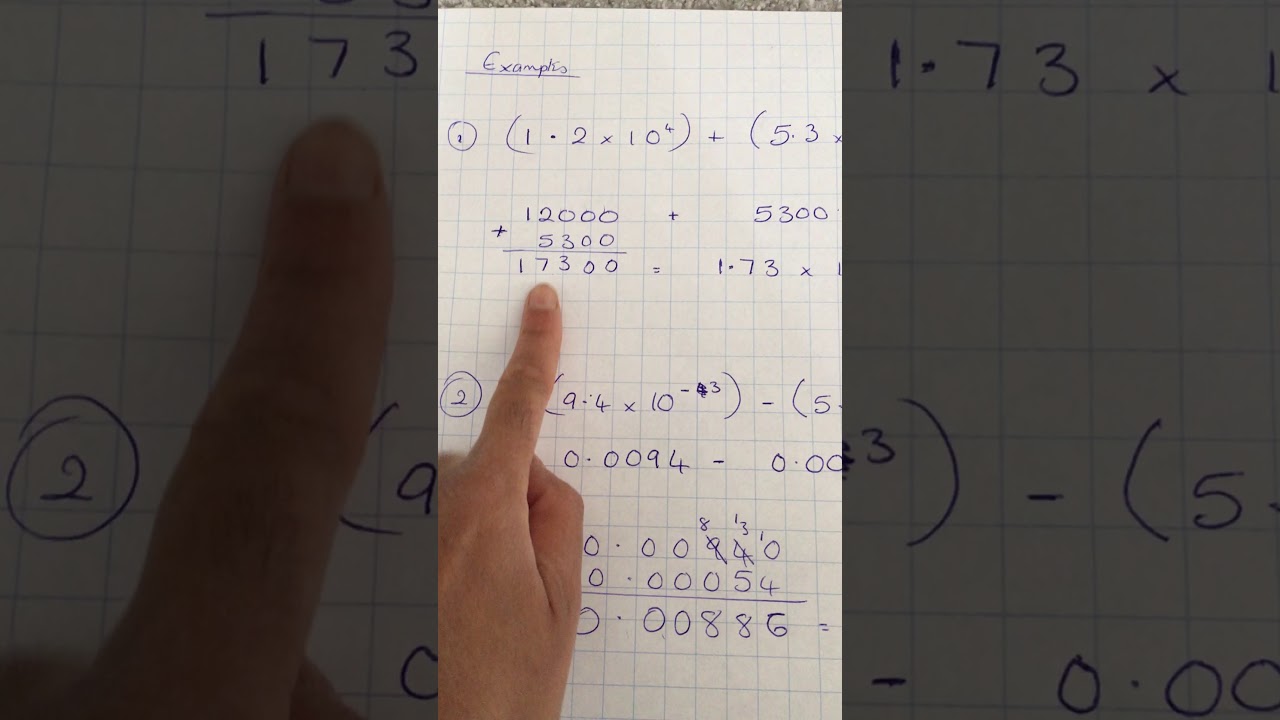 Examples
1 (1.2 × 10⁴) + (5.3 ×
12000 + 5300
+ 5300
17300 = 1.73 × 1
2 (9.4 × 10⁻³) - (5.
0.0094 - 0.00
8 13 1
0.00940
0.00054
0.00886 =